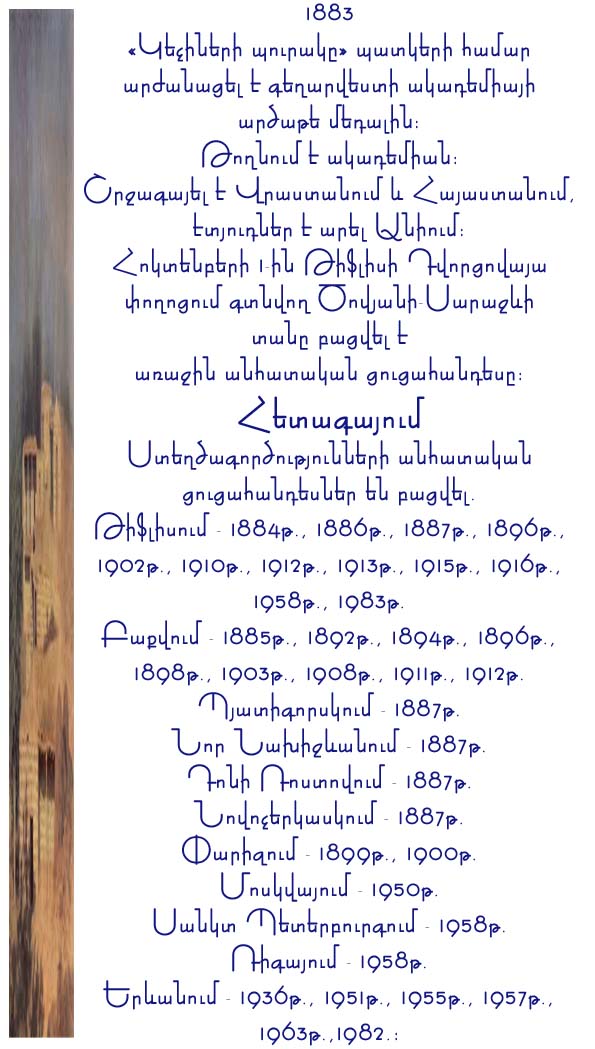 1883
«Կեչիների պուրակը» պատկերի համար
արժանացել է գեղարվեստի ակադեմիայի
արծաթե մեդալին:
Թողնում է ակադեմիան:
Շրջագայել է Վրաստանում և Հայաստանում,
էտյուդներ է արել Անիում:
Հոկտենբերի 1-ին Թիֆլիսի Դվորցովայա
փողոցում գտնվող Ծովյանի-Սարաջևի
տանը բացվել է
առաջին անհատական ցուցահանդեսը:
Հետագայում
Ստեղծագործությունների անհատական
ցուցահանդեսներ են բացվել.
Թիֆլիսում - 1884թ., 1886թ., 1887թ., 1896թ.,
1902թ., 1910թ., 1912թ., 1913թ., 1915թ., 1916թ.,
1958թ., 1983թ.
Բաքվում - 1885թ., 1892թ., 1894թ., 1896թ.,
1898թ., 1903թ., 1908թ., 1911թ., 1912թ.
Պյատիգորսկում - 1887թ.
Նոր Նախիջևանում - 1887թ.
Դոնի Ռոստովում - 1887թ.
Նովոչերկասկում - 1887թ.
Փարիզում - 1899թ., 1900թ.
Մոսկվայում - 1950թ.
Սանկտ Պետերբուրգում - 1958թ.
Ռիգայում - 1958թ.
Երևանում - 1936թ., 1951թ., 1955թ., 1957թ.,
1963թ.,1982.: